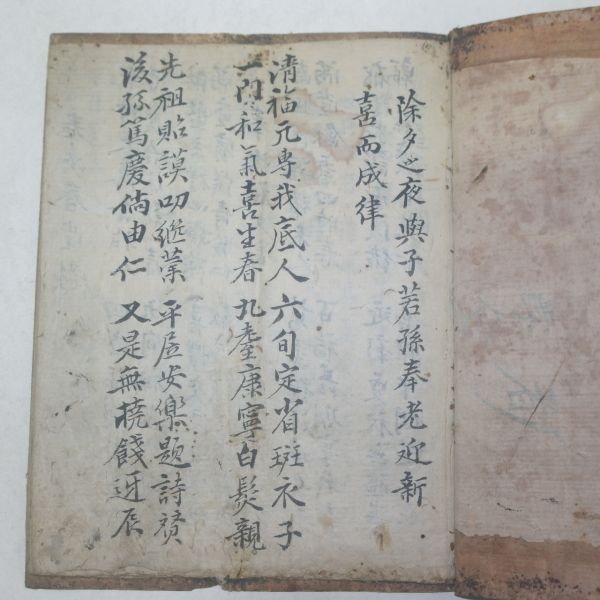 除夕之夜與子若孫奉老迎新
喜而成律
清福元專我底人 六旬定省斑衣子
一門和氣喜生春 九耋康寧白髮親
先祖貽謨叨繼業 平居安樂題詩
後孫篤慶倘由仁 又是無撓餞迓辰